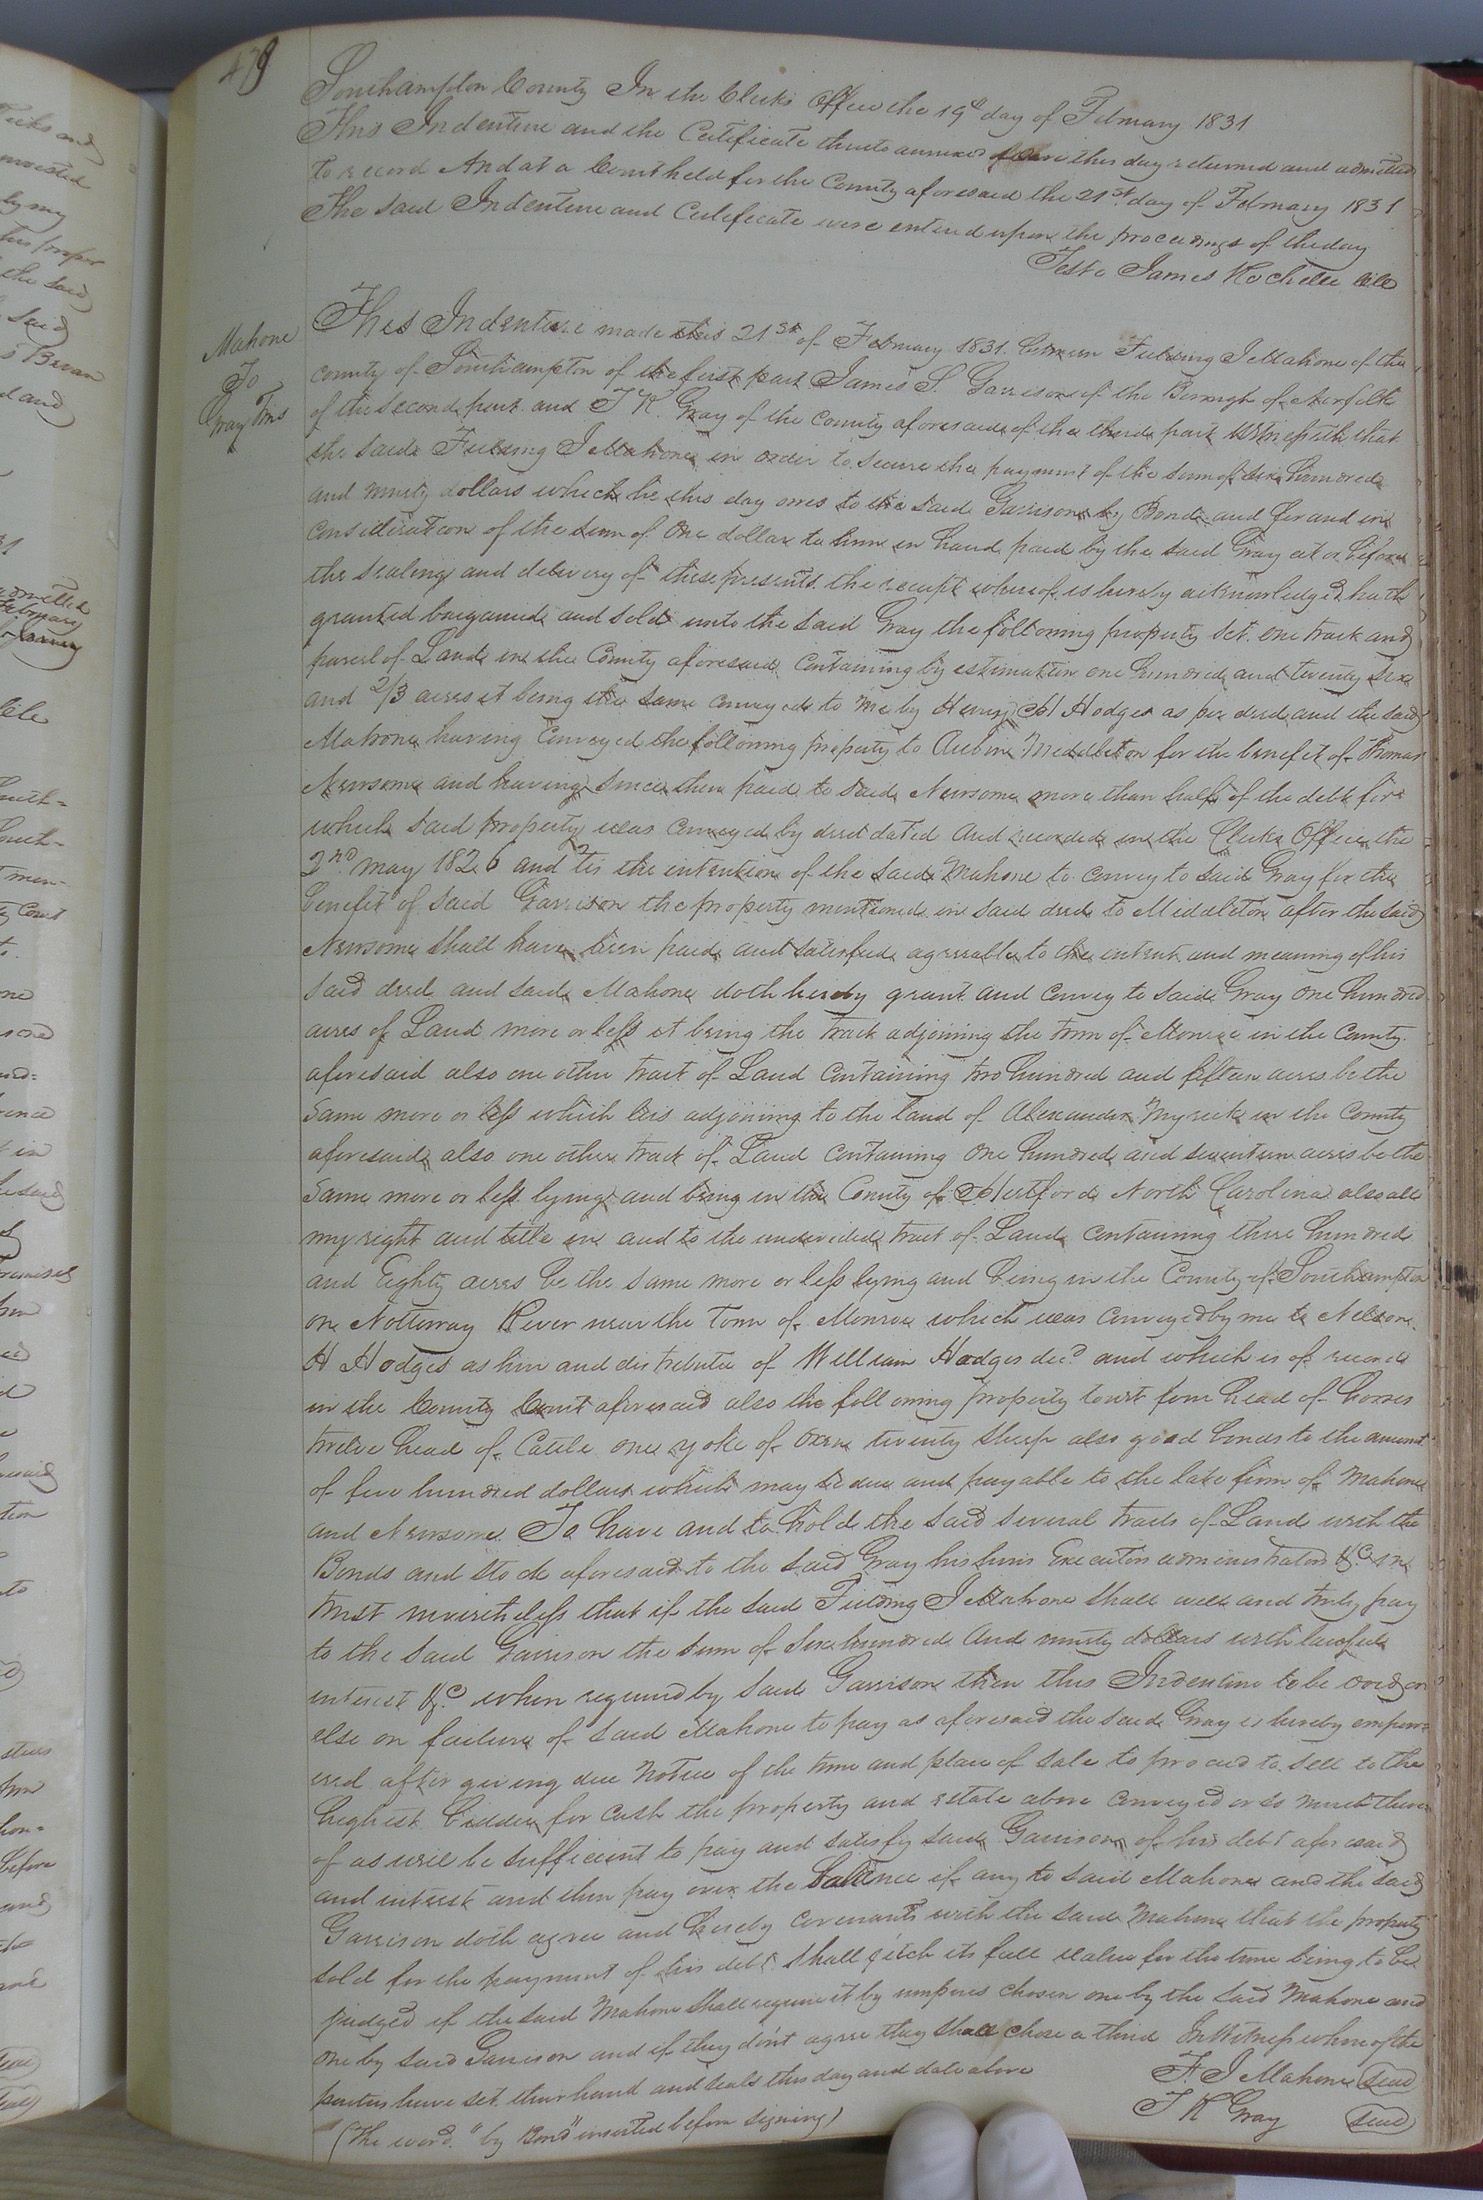 479
Southampton County In the Clerks Office the 19th day of February 1831
This Indenture and the Certificate thereto annexed were this day returned and admitted
to record And at a Court held for the County aforesaid the 21st day of February 1831
The said Indenture and Certificate were entered upon the proceedings of the day
Teste James Rochelle Clk
Mahone
To
Gray Trus
This Indenture made this 21st of February 1831 between Fielding J Mahone of the
county of Southampton of the first part James S. Garrison of the Borough of Norfolk
of the second part and J R. Gray of the County aforesaid of the third part Witnesseth that
the said Fielding J Mahone in order to secure the payment of the sum of six hundred
and ninety dollars which he this day owes to the said Garrison by Bond and for and in
consideration of the sum of One dollar to him in hand paid by the said Gray at or before
the sealing and delivery of these presents the receipt whereof is hereby acknowledged hath
granted bargained and sold unto the said Gray the following property sct. one track and
parcel of Land in the County aforesaid containing by estimation one hundred and twenty six
and 2/3 acres it being the same conveyed to me by Henry H Hodges as per deed and the said
Mahone having conveyed the following property to Middleton for the benefit of Thomas
Newsome and having since then paid to said Newsome more than half of the debt for
which said property was conveyed by deed dated and recorded in the Clerks Office the
2nd May 1826 and tis the intention of the said Mahone to convey to said Gray for the
benefit of said Garrison the property mentioned in said deed to Middleton after the said
Newsome shall have been paid and satisfied agreeable to the intent and meaning of his
said deed and said Mahone doth hereby grant and convey to said Gray one hundred
acres of Land more or less it being the track adjoining the town of Monroe in the County
aforesaid also one other tract of Land containing two hundred and fifteen acres be the
same more or less which lies adjoining to the land of Alexander Myrick in the County
aforesaid also one other track of Land containing One hundred and seventeen acres be the
same more or less lying and being in the County of Hertford North Carolina also all
my right and title in and to the undivided tract of Land containing three hundred
and Eighty acres be the same more or less lying and being in the County of Southampton
on Nottoway River near the Town of Monroe which was conveyed by me to Nelson
H Hodges as heir and distributee of William Hodges decd and which is of record
in the County Court aforesaid also the following property towit four head of horses
twelve head of Cattle one yoke of oxen twenty sheep also good bonds to the amount
of five hundred dollars which may be due and payable to the late firm of Mahone
and Newsome To have and to hold the said several tracts of Land with the
Bonds and stock aforesaid to the said Gray his heirs Executors administrators &c in
trust nevertheless that if the said Fielding J Mahone shall well and truly pay
to the said Garrison the sum of six hundred and ninety dollars with lawful
interest &c when required by said Garrison then this Indenture to be void or
else on failure of said Mahone to pay as aforesaid the said Gray is hereby empow=
ered after giving due Notice of the time and place of sale to proceed to sell to the
highest bidder for cash the property and estate above conveyed or so much there
of as will be sufficient to pay and satisfy said Garrison of his debt aforesaid
and interest and then pay over the balance if any to said Mahone and the said
Garrison doth agree and hereby covenants with the said Mahone that the property
sold for the payment of his debt shall fetch its full value for the time being to be
judged if the said Mahone shall require it by umpires chosen one by the said Mahone and
one by said Garrison and if they dont agree they shall chose a third In Witness whereof the
parties have set their hand and seals this day and date above
F. J Mahone Seal
J R Gray Seal
(The word "by Bond" inserted before signing)